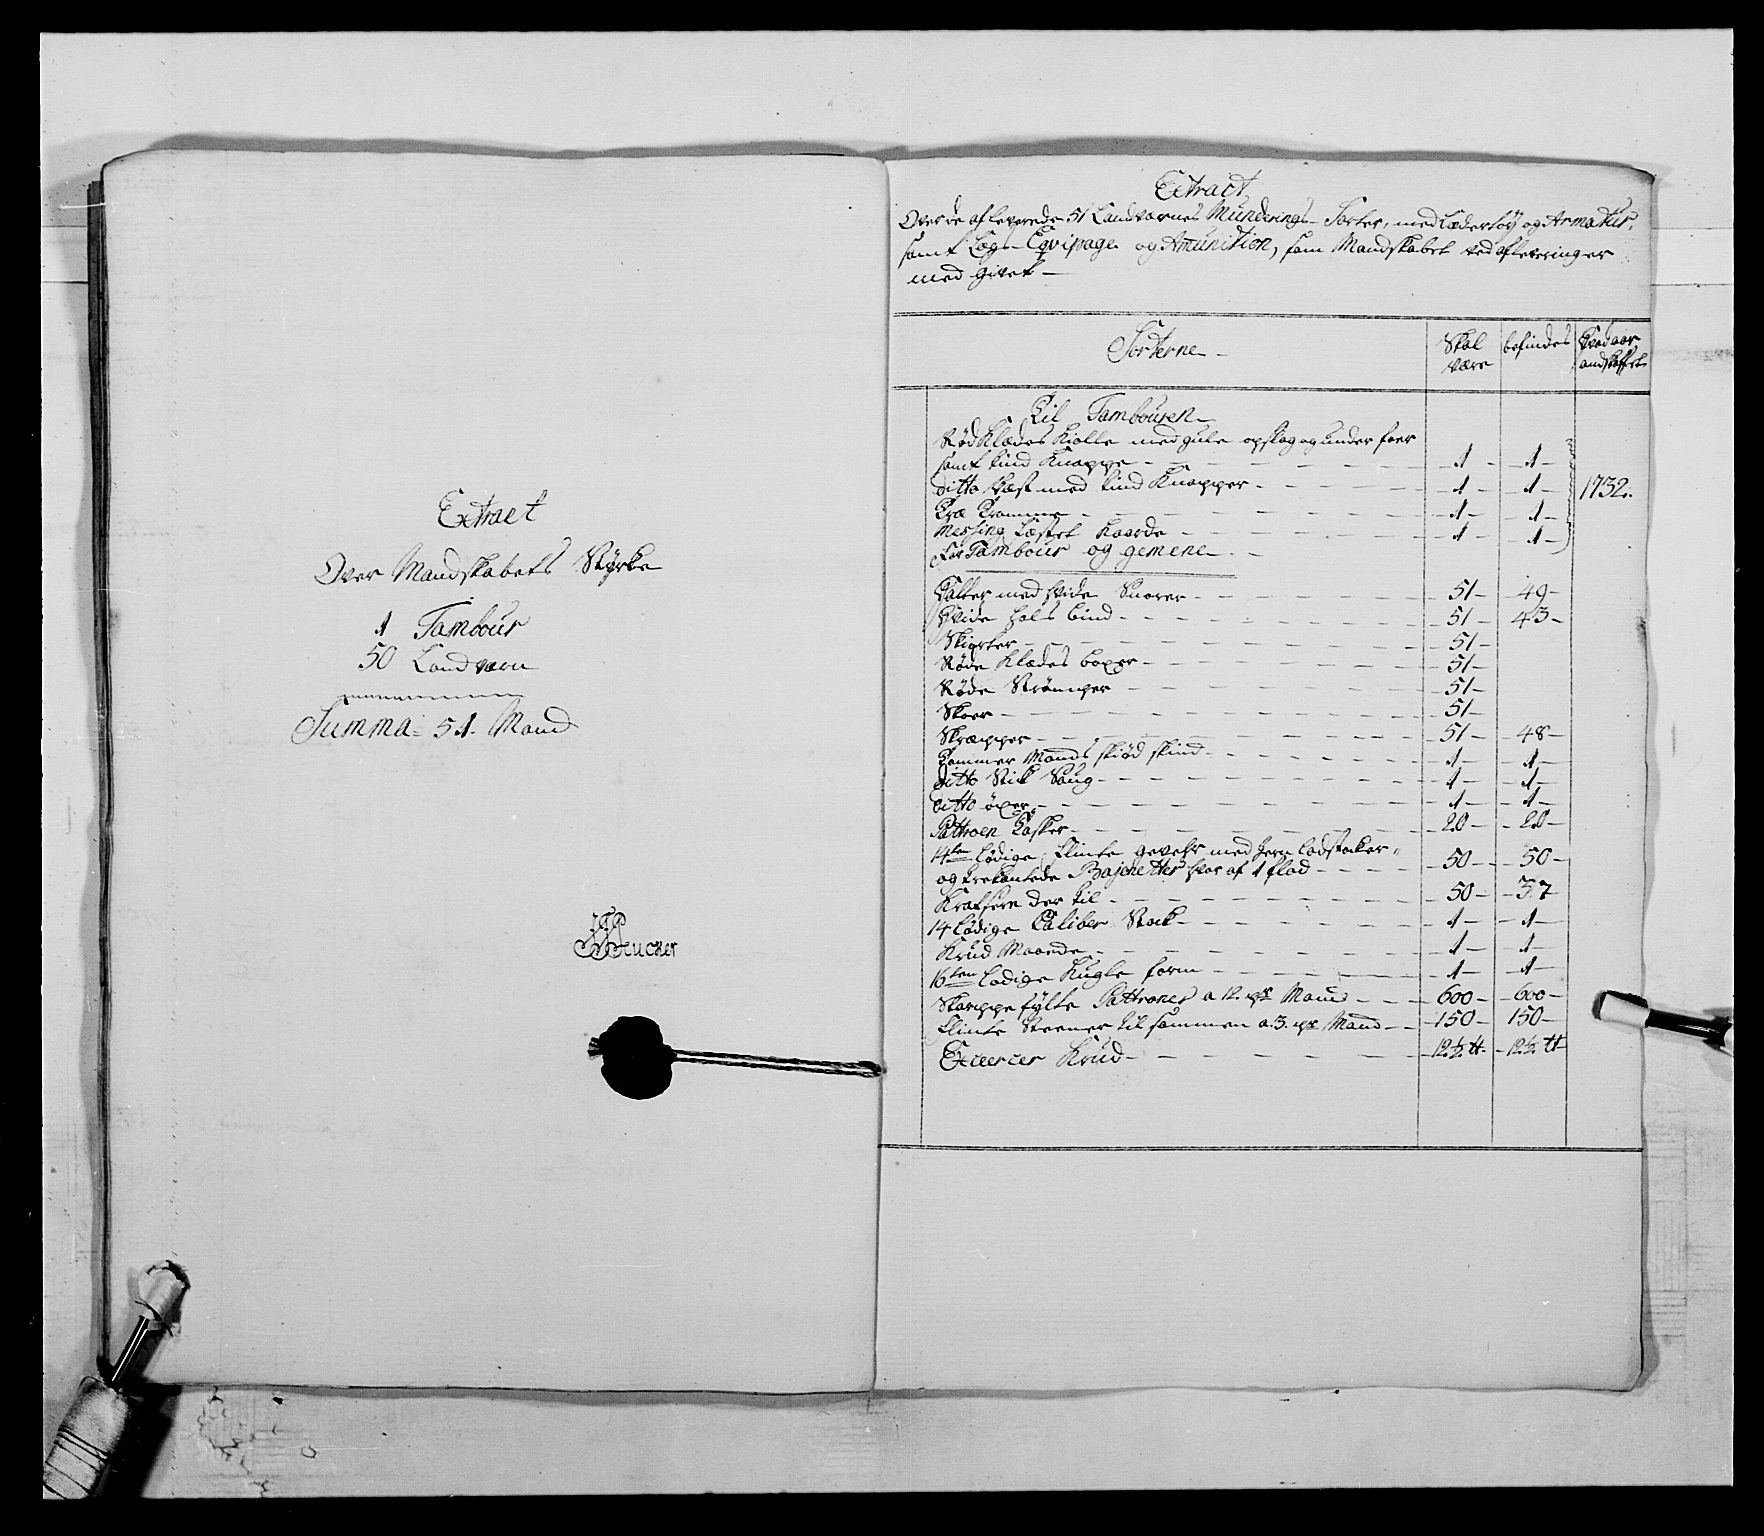 Extract
Over Mandskabets Styrke
1 Tambour
50 Landværn
Summa 51. Mand
Extract
Over de afleverede 51 Landværnes Munderings-Sorter, med Lædertöy og Armatur,
samt Tög-Eqvipage og Amunition, som Mandskabet ved afleveringer
med givet
Sorterne
Skal være
befindes
Hvad aar andskaffet
Til Tambouren
Rød Klædes Kiolle med gule opslag og under foer
samt tind Knappe 1 1
ditto Væst med tind Knapper 1 1 1732.
Træ Tromme 1 1
Messing Fæstet Kaarde 1 1
For Tambour og gemene
Hatter med hvide Snorer 51 49
Hvide hals bind 51 43
Skiorter 51
Røde Klædes boxer 51
Røde Strömper 51
Skoer 51
Skrepper 51 48
Tømmer Mands skiød skind 1 1
ditto Stik Saug 1 1
ditto öxer 1 1
Pattroen Tasker 20 20
14ten Lödige Flinte gevehr med Jern ladstoker
og trekantede Bajonetter hvor af 1 flad 50 50
Kratsere der til 50 37
14 Lödige Caliber Stok 1 1
Krud Maade 1 1
16ten Lodige Kugle form 1 1
Skarppe fylte Pattroner a 12. pr Mand 600 600
Flinte Steener til sammen a. 3. pr Mand 150 150
Excercer Krud 12½ tt 12½ tt